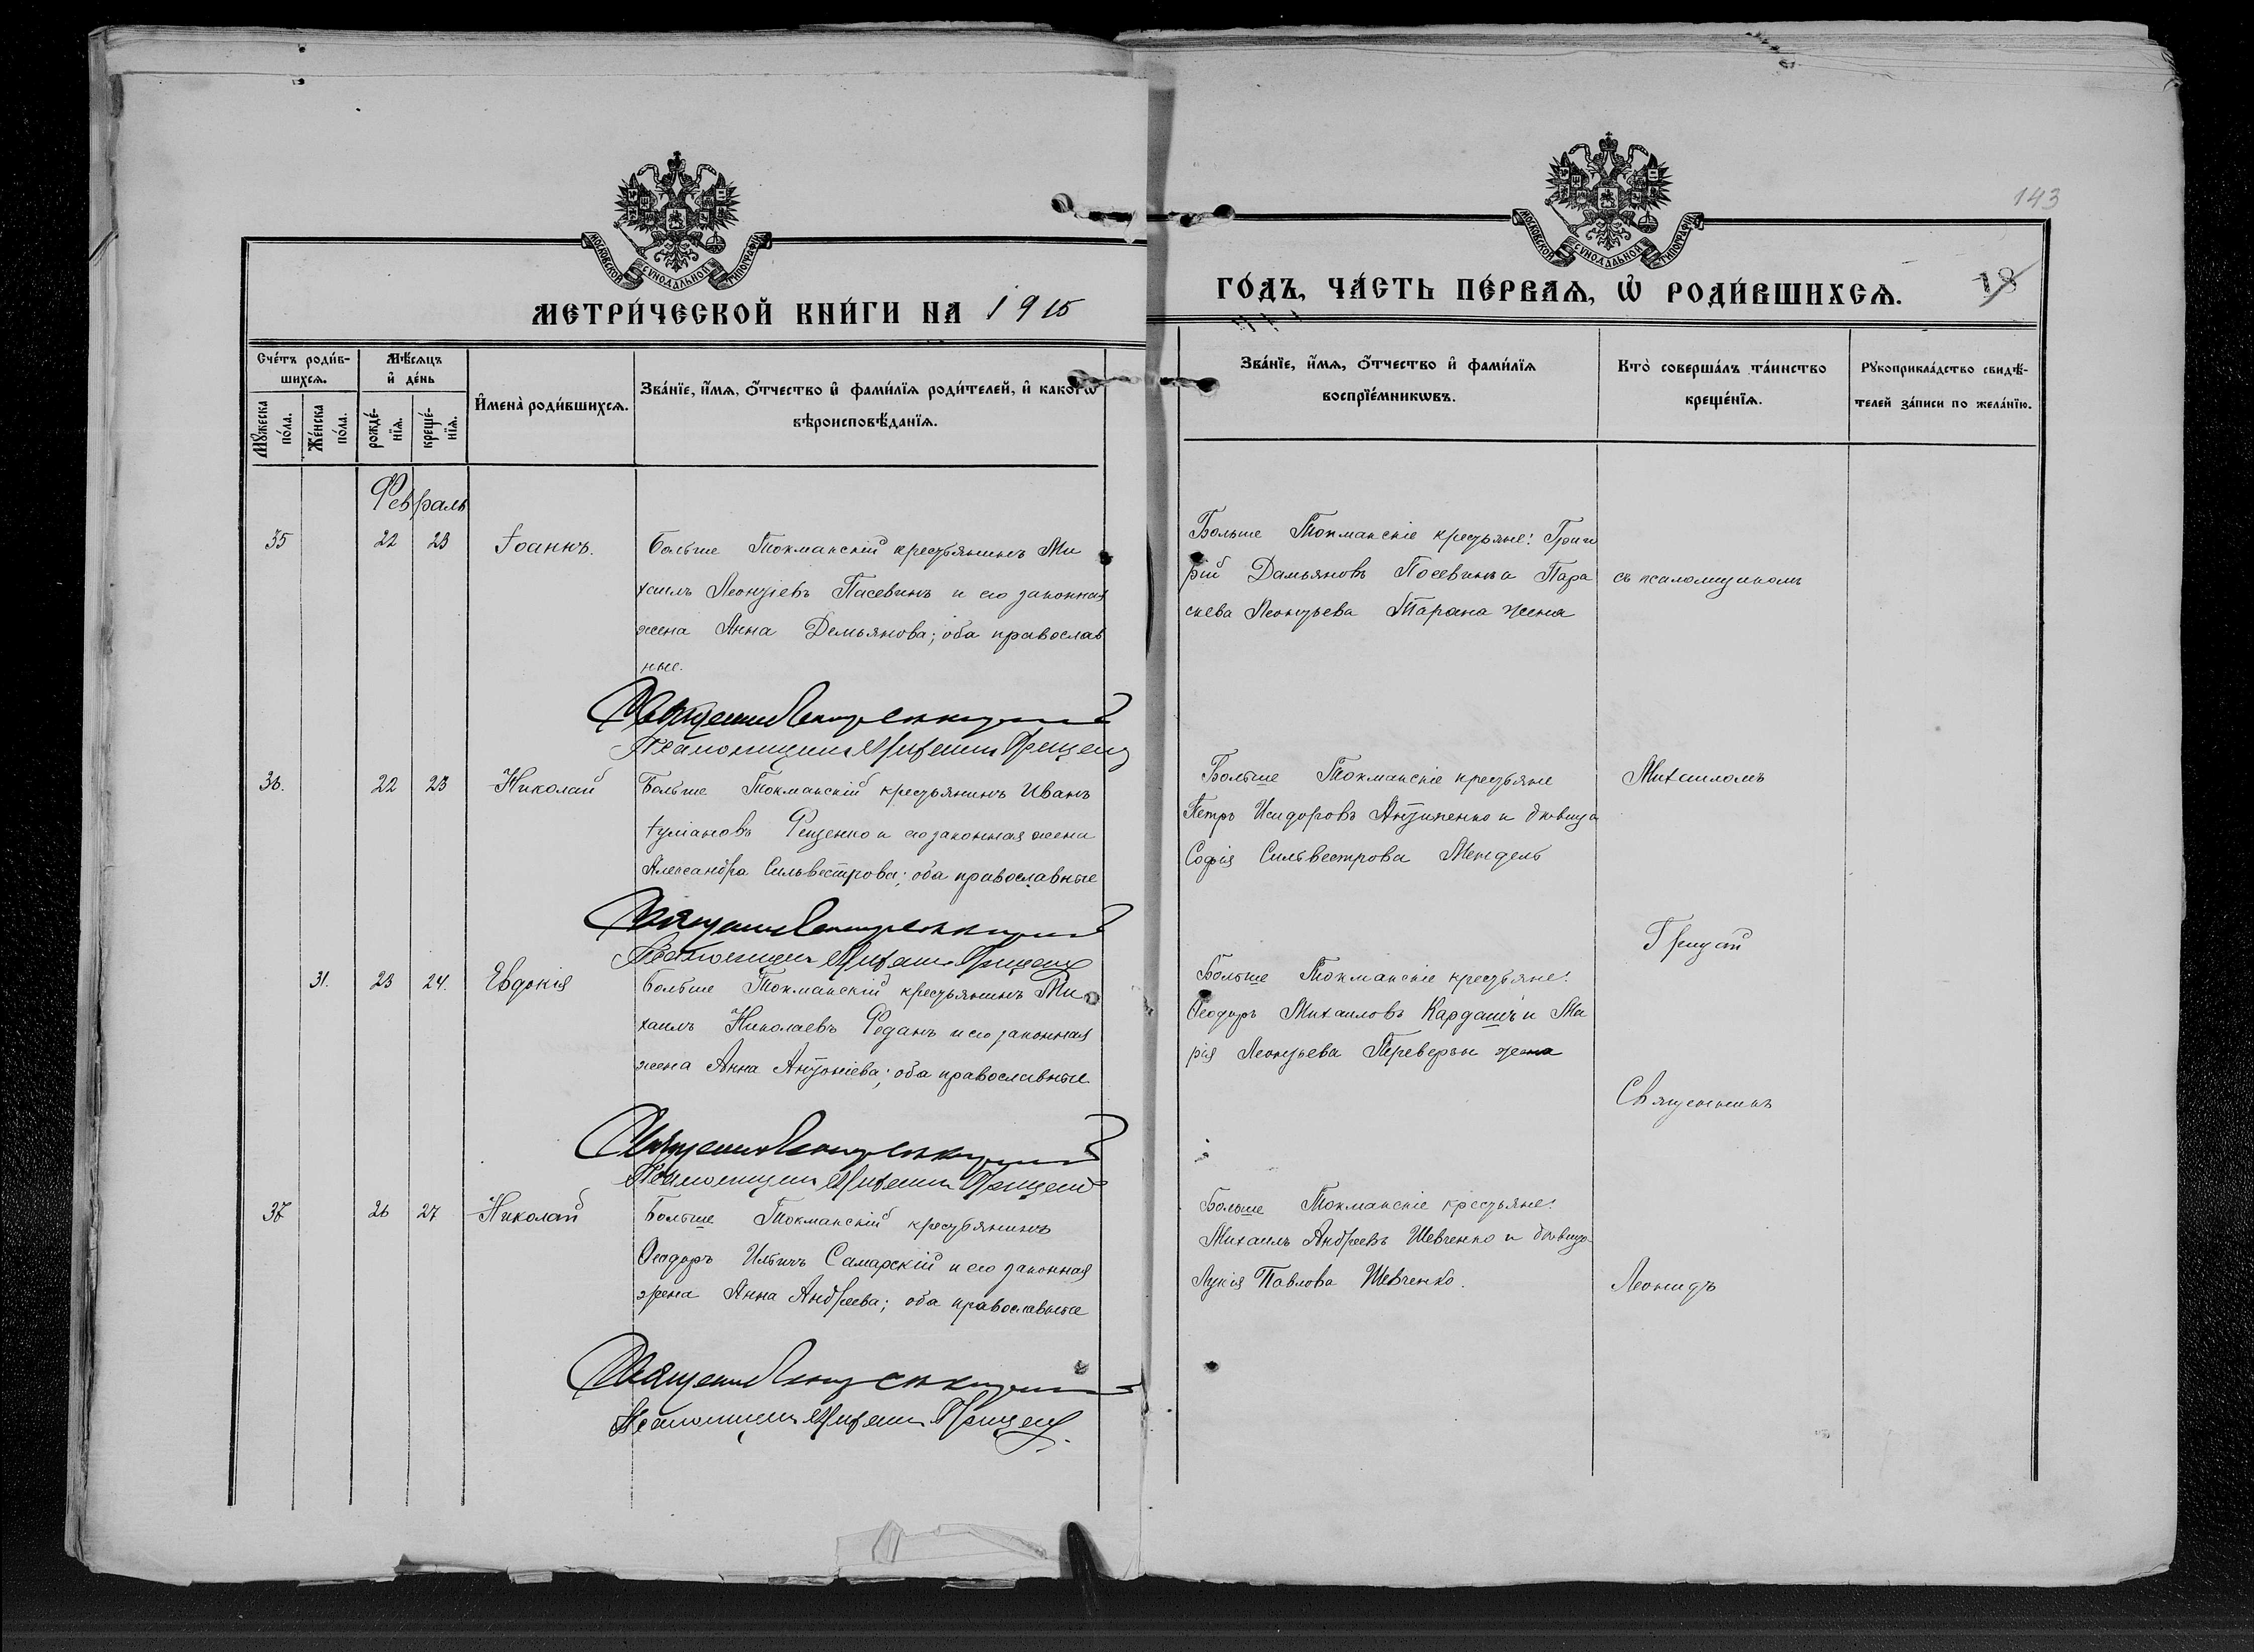 143
МОСКОВСКОЙ СѴНОДАЛЬНОЙ ТИПОГРАФІИ
МОСКОВСКОЙ СѴНОДАЛЬНОЙ ТИПОГРАФІИ
МЕТРИ́ЧЕСКОЙ КНИ́ГИ НА 1915
ГО́ДЪ, ЧА́СТЬ ПЕ́РВАѦ, Ѡ҆ РОДИ́ВШИХСѦ.
18
Сче́тъ роди́в-
шихсѧ.
Мѣ́сѧцъ
и҆ де́нь
Мꙋ́жеска
по́ла.
Же́нска
по́ла.
рожде́-
нїѧ.
креще́-
нїѧ.
И҆мена̀ роди́вшихсѧ.
Зва́нїе, и҆́мѧ, ѻ҆́тчество и҆ фами́лїѧ роди́телей, и҆ како́гѡ
вѣроисповѣ́данїѧ.
Зва́нїе, и҆́мѧ, ѻ҆́тчество и҆ фами́лїѧ
воспрїе́мникѡвъ.
Кто̀ соверша́лъ та́инство
креще́нїѧ.
Рꙋкоприкла́дство свидѣ́-
телей за́писи по жела́нїю.
Февраль
35 22 23 Іоаннъ.
Больше Токмакскій крестьянинъ Ми
хаилъ Леонтіевъ Пасевинъ и его законная
жена Анна Демьянова; оба православ
ные.
Больше Токмакскіе крестьяне: Григо
рій Дамьяновъ Посевинъ и Пара
скева Леонтьева Тарана жена
съ псаломщикомъ
36. 22 23 Николай
Больше Токмакскій крестьянинъ Иванъ
Іуліановъ Фещенко и его законная жена
Александра Сильвестрова; оба православные
Больше Токмакскіе крестьяне
Петръ Исидоровъ Антипенко и дѣвица
Софія Сильвестрова Мендель
Михаиломъ
Грицай
31. 23 24. Евдокія
Больше Токмакскій крестьянинъ Ми
хаилъ Николаевъ Феданъ и его законная
жена Анна Антоніева; оба православные
Больше Токмакскіе крестьяне:
Ѳеодоръ Михаиловъ Кардашъ и Ма
рія Леонтьева Переверзы жена
Священникъ
37 26 27 Николай
Больше Токмакскій крестьянинъ
Ѳеодоръ Ильичъ Самарскій и его законная
жена Анна Андреева; оба православные
Больше Токмакскіе крестьяне:
Михаилъ Андреевъ Шевченко и дѣвица
Лукія Павлова Шевченко.
Леонидъ